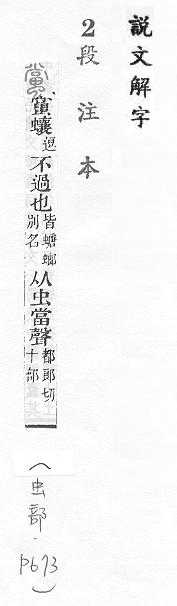 説文解字
2段注本
蟷蠰逗不過也皆蟷螂別名从虫當聲都郎切十部
(虫部.p673)